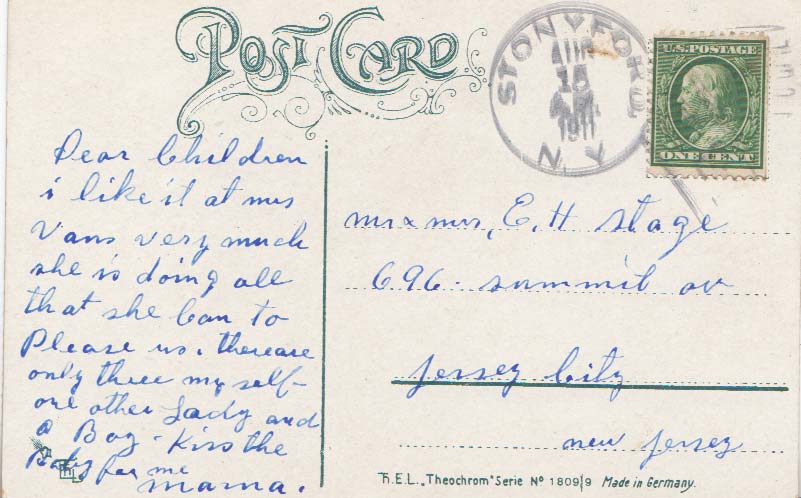 POST CARD
STONYFORD
AUG
15
1911
N.Y.
U.S. POSTAGE
ONE CENT
Dear Children
i like it at mrs
Vans very much
she is doing all
that she Can to
Please us. thereare
only three my self-
one other Lady and
a Boy - Kiss the
Baby for me
mama.
mr & mrs, E. H Stage
696. summit av
Jersey City
new Jersey
H.E.L. „Theochrom" Serie Nº 1809/9 Made in Germany.